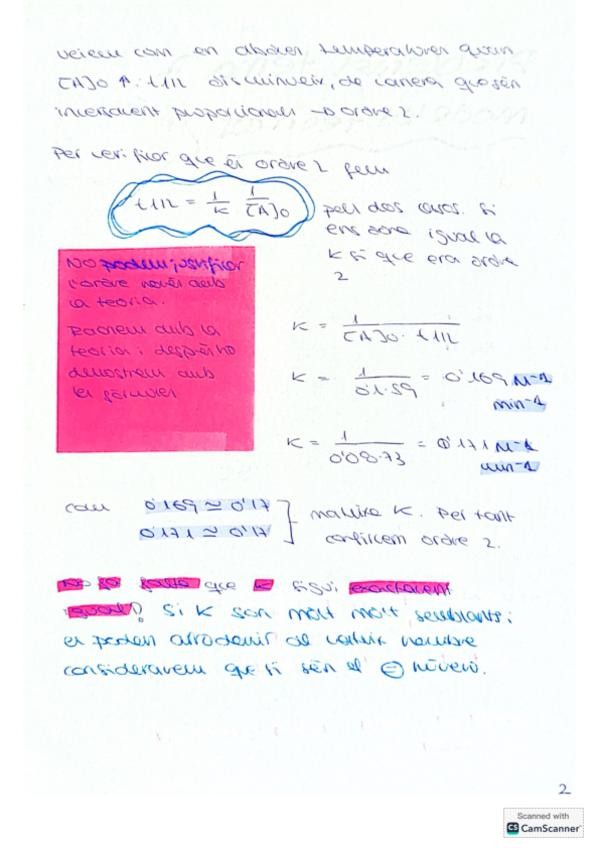 veiem com en abdues temperatures quan
[A]o ↑. t1/2 disminueix, de manera que són
inversament proporcionals → ordre 2.
Per verificar que és ordre 2 fem
t1/2 = 1/K 1/[A]o
pels dos casos. Si
ens dona igual la
K sí que era ordre
2
No podem justificar
l'ordre només amb
la teoria.
Raonem amb la
teoria i després ho
demostrem amb
les fórmules
K = 1/[A]o · t1/2
K = 1/0'1·59 = 0'169 M-1
min-1
K = 1/0'08·73 = 0'171 M-1
min-1
com 0'169 ≃ 0'17
0'171 ≃ 0'17
mateixa K. Per tant
confirmem ordre 2.
No fa falta que K sigui exactament
igual! Si K son molt molt semblants i
es poden arrodonir al mateix nombre
considerarem que sí són el = número.
2
Scanned with
CS CamScanner